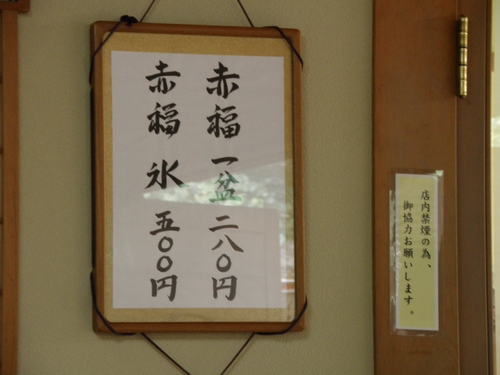 赤福 一盆 二八〇円
赤福 氷 五〇〇円
店内禁煙の為、
御協力お願いします。